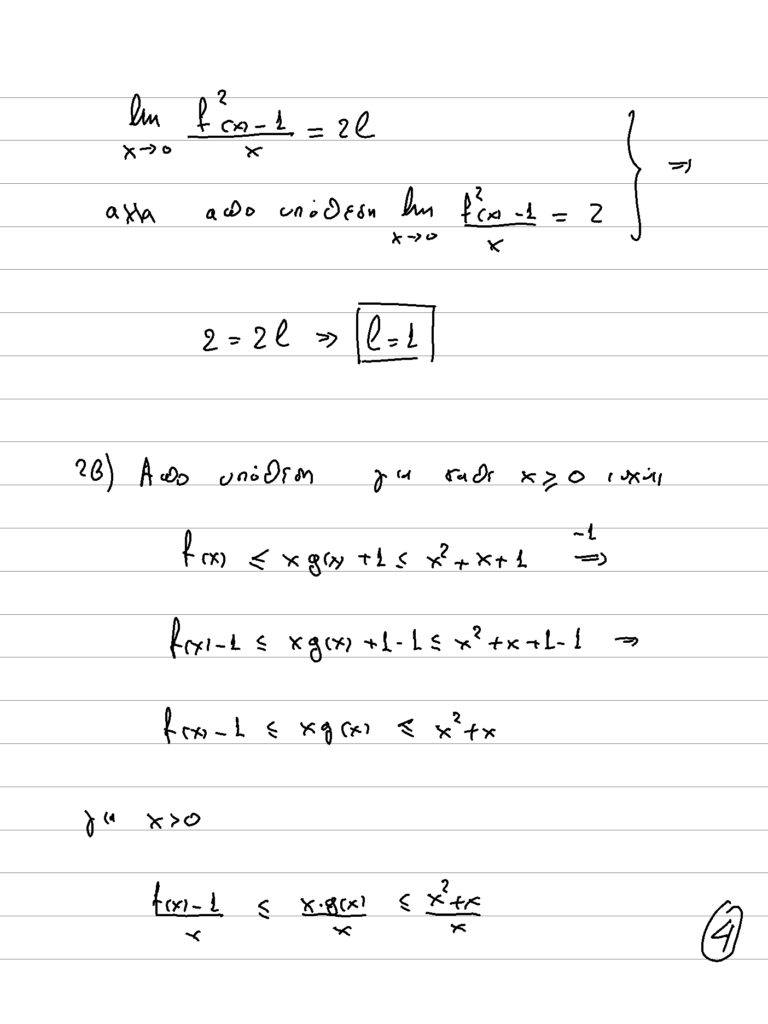 lim_{x→0} (f²(x) - 1)/x = 2ℓ
αλλα από υπόθεση lim_{x→0} (f²(x) - 1)/x = 2 } ⇒
2 = 2ℓ ⇒ ℓ = 1
2β) Από υπόθεση για κάθε x ≥ 0 ισχύει
f(x) ≤ x g(x) + 1 ≤ x² + x + 1 ⇒^{-1}
f(x) - 1 ≤ x g(x) + 1 - 1 ≤ x² + x + 1 - 1 ⇒
f(x) - 1 ≤ x g(x) ≤ x² + x
για x > 0
(f(x) - 1)/x ≤ (x · g(x))/x ≤ (x² + x)/x
4